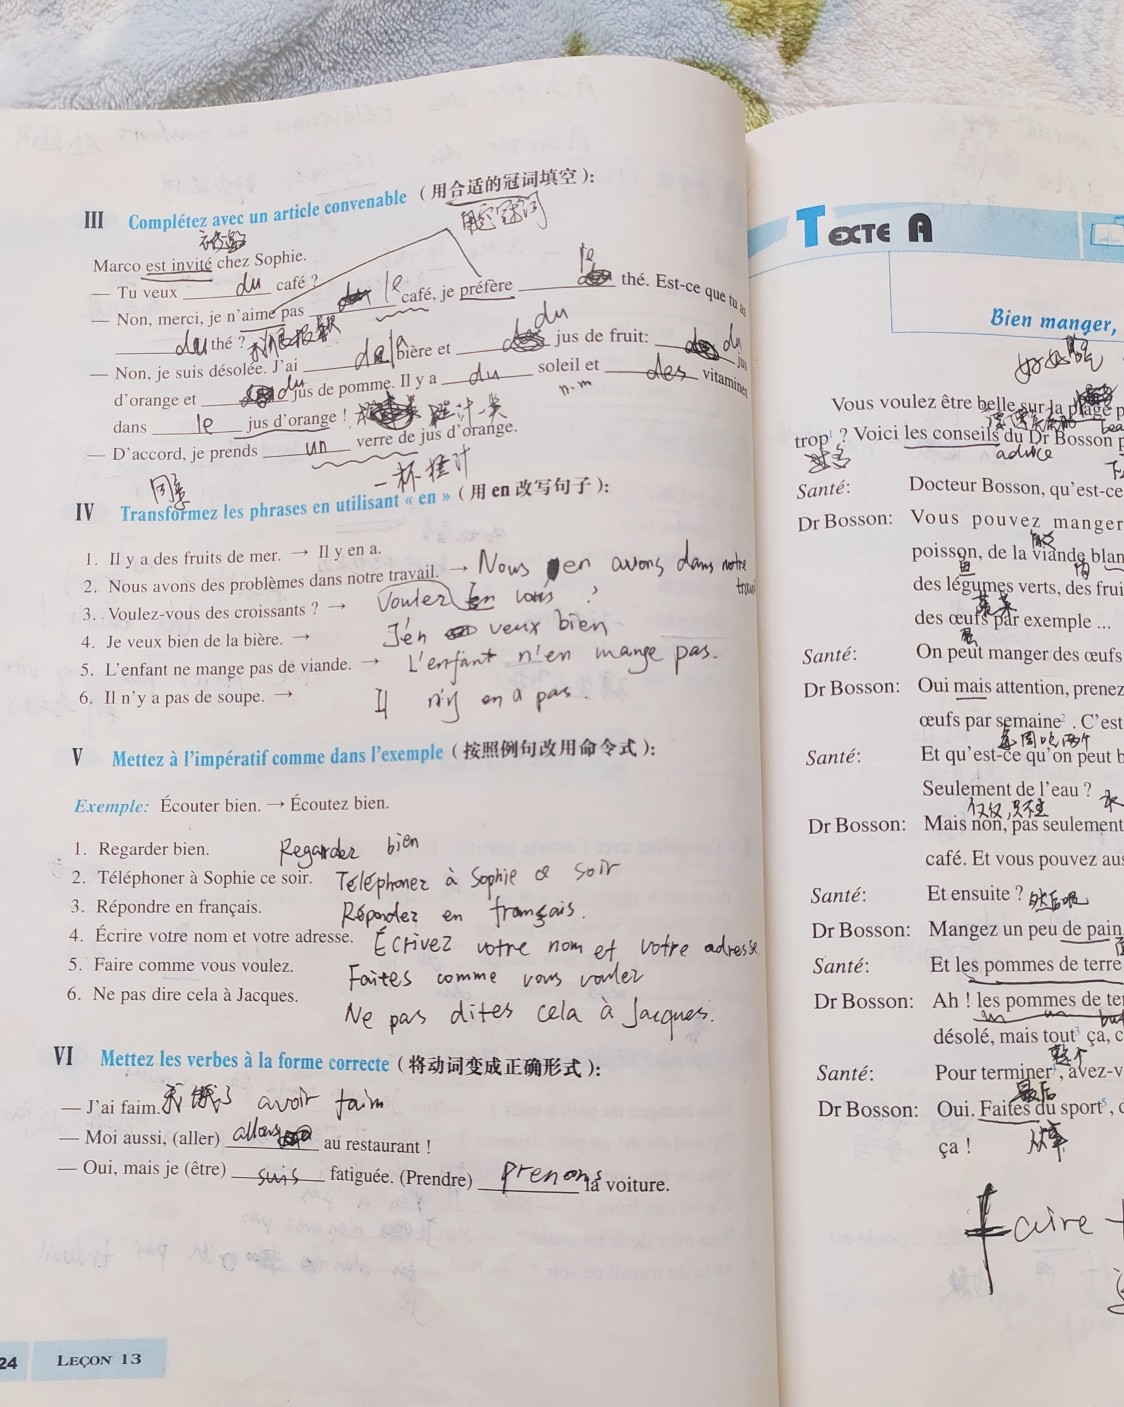 III Complétez avec un article convenable (用合适的冠词填空):
用定冠词
Marco est invité chez Sophie.
— Tu veux du café ?
— Non, merci, je n'aime pas le café, je préfère le thé. Est-ce que tu as
du thé ?
— Non, je suis désolée. J'ai de la bière et du jus de fruit: du jus
d'orange et du jus de pomme. Il y a du soleil et des vitamines
n.m
dans le jus d'orange !
— D'accord, je prends un verre de jus d'orange.
一杯橙汁
同意
IV Transformez les phrases en utilisant « en » (用 en 改写句子):
1. Il y a des fruits de mer. → Il y en a.
2. Nous avons des problèmes dans notre travail. → Nous en avons dans notre
3. Voulez-vous des croissants ? → Voulez en vous ?
4. Je veux bien de la bière. → J'en veux bien
5. L'enfant ne mange pas de viande. → L'enfant n'en mange pas.
6. Il n'y a pas de soupe. → Il n'y en a pas
V Mettez à l'impératif comme dans l'exemple (按照例句改用命令式):
Exemple: Écouter bien. → Écoutez bien.
1. Regarder bien. Regardez bien
2. Téléphoner à Sophie ce soir. Téléphonez à Sophie ce soir
3. Répondre en français. Répondez en français.
4. Écrire votre nom et votre adresse. Écrivez votre nom et votre adresse
5. Faire comme vous voulez. Faites comme vous voulez
6. Ne pas dire cela à Jacques. Ne pas dites cela à Jacques.
VI Mettez les verbes à la forme correcte (将动词变成正确形式):
— J'ai faim. 我饿了 avoir faim
— Moi aussi, (aller) allons au restaurant !
— Oui, mais je (être) suis fatiguée. (Prendre) prenons la voiture.
24 LEÇON 13
TEXTE A
Bien manger,
好好吃
Vous voulez être belle sur la plage
trop¹ ? Voici les conseils du Dr Bosson
advice
Santé: Docteur Bosson, qu'est-ce
Dr Bosson: Vous pouvez manger
poisson, de la viande blan
鱼 肉
des légumes verts, des frui
蔬菜
des œufs par exemple ...
Santé: On peut manger des œufs
Dr Bosson: Oui mais attention, prenez
œufs par semaine² . C'est
每周吃两个
Santé: Et qu'est-ce qu'on peut b
Seulement de l'eau ? 水
仅仅,只不过
Dr Bosson: Mais non, pas seulement
café. Et vous pouvez aus
Santé: Et ensuite ? 然后呢
Dr Bosson: Mangez un peu de pain
Santé: Et les pommes de terre
Dr Bosson: Ah ! les pommes de ter
désolé, mais tout³ ça, c
整个
Santé: Pour terminer⁴, avez-v
最后
Dr Bosson: Oui. Faites du sport⁵, d
ça ! 从事
faire +